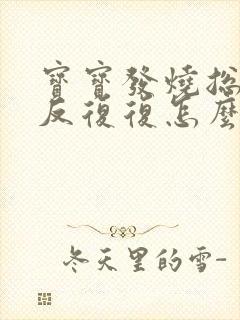 寶寶發燒總
反復復怎麼
冬天里的雪-